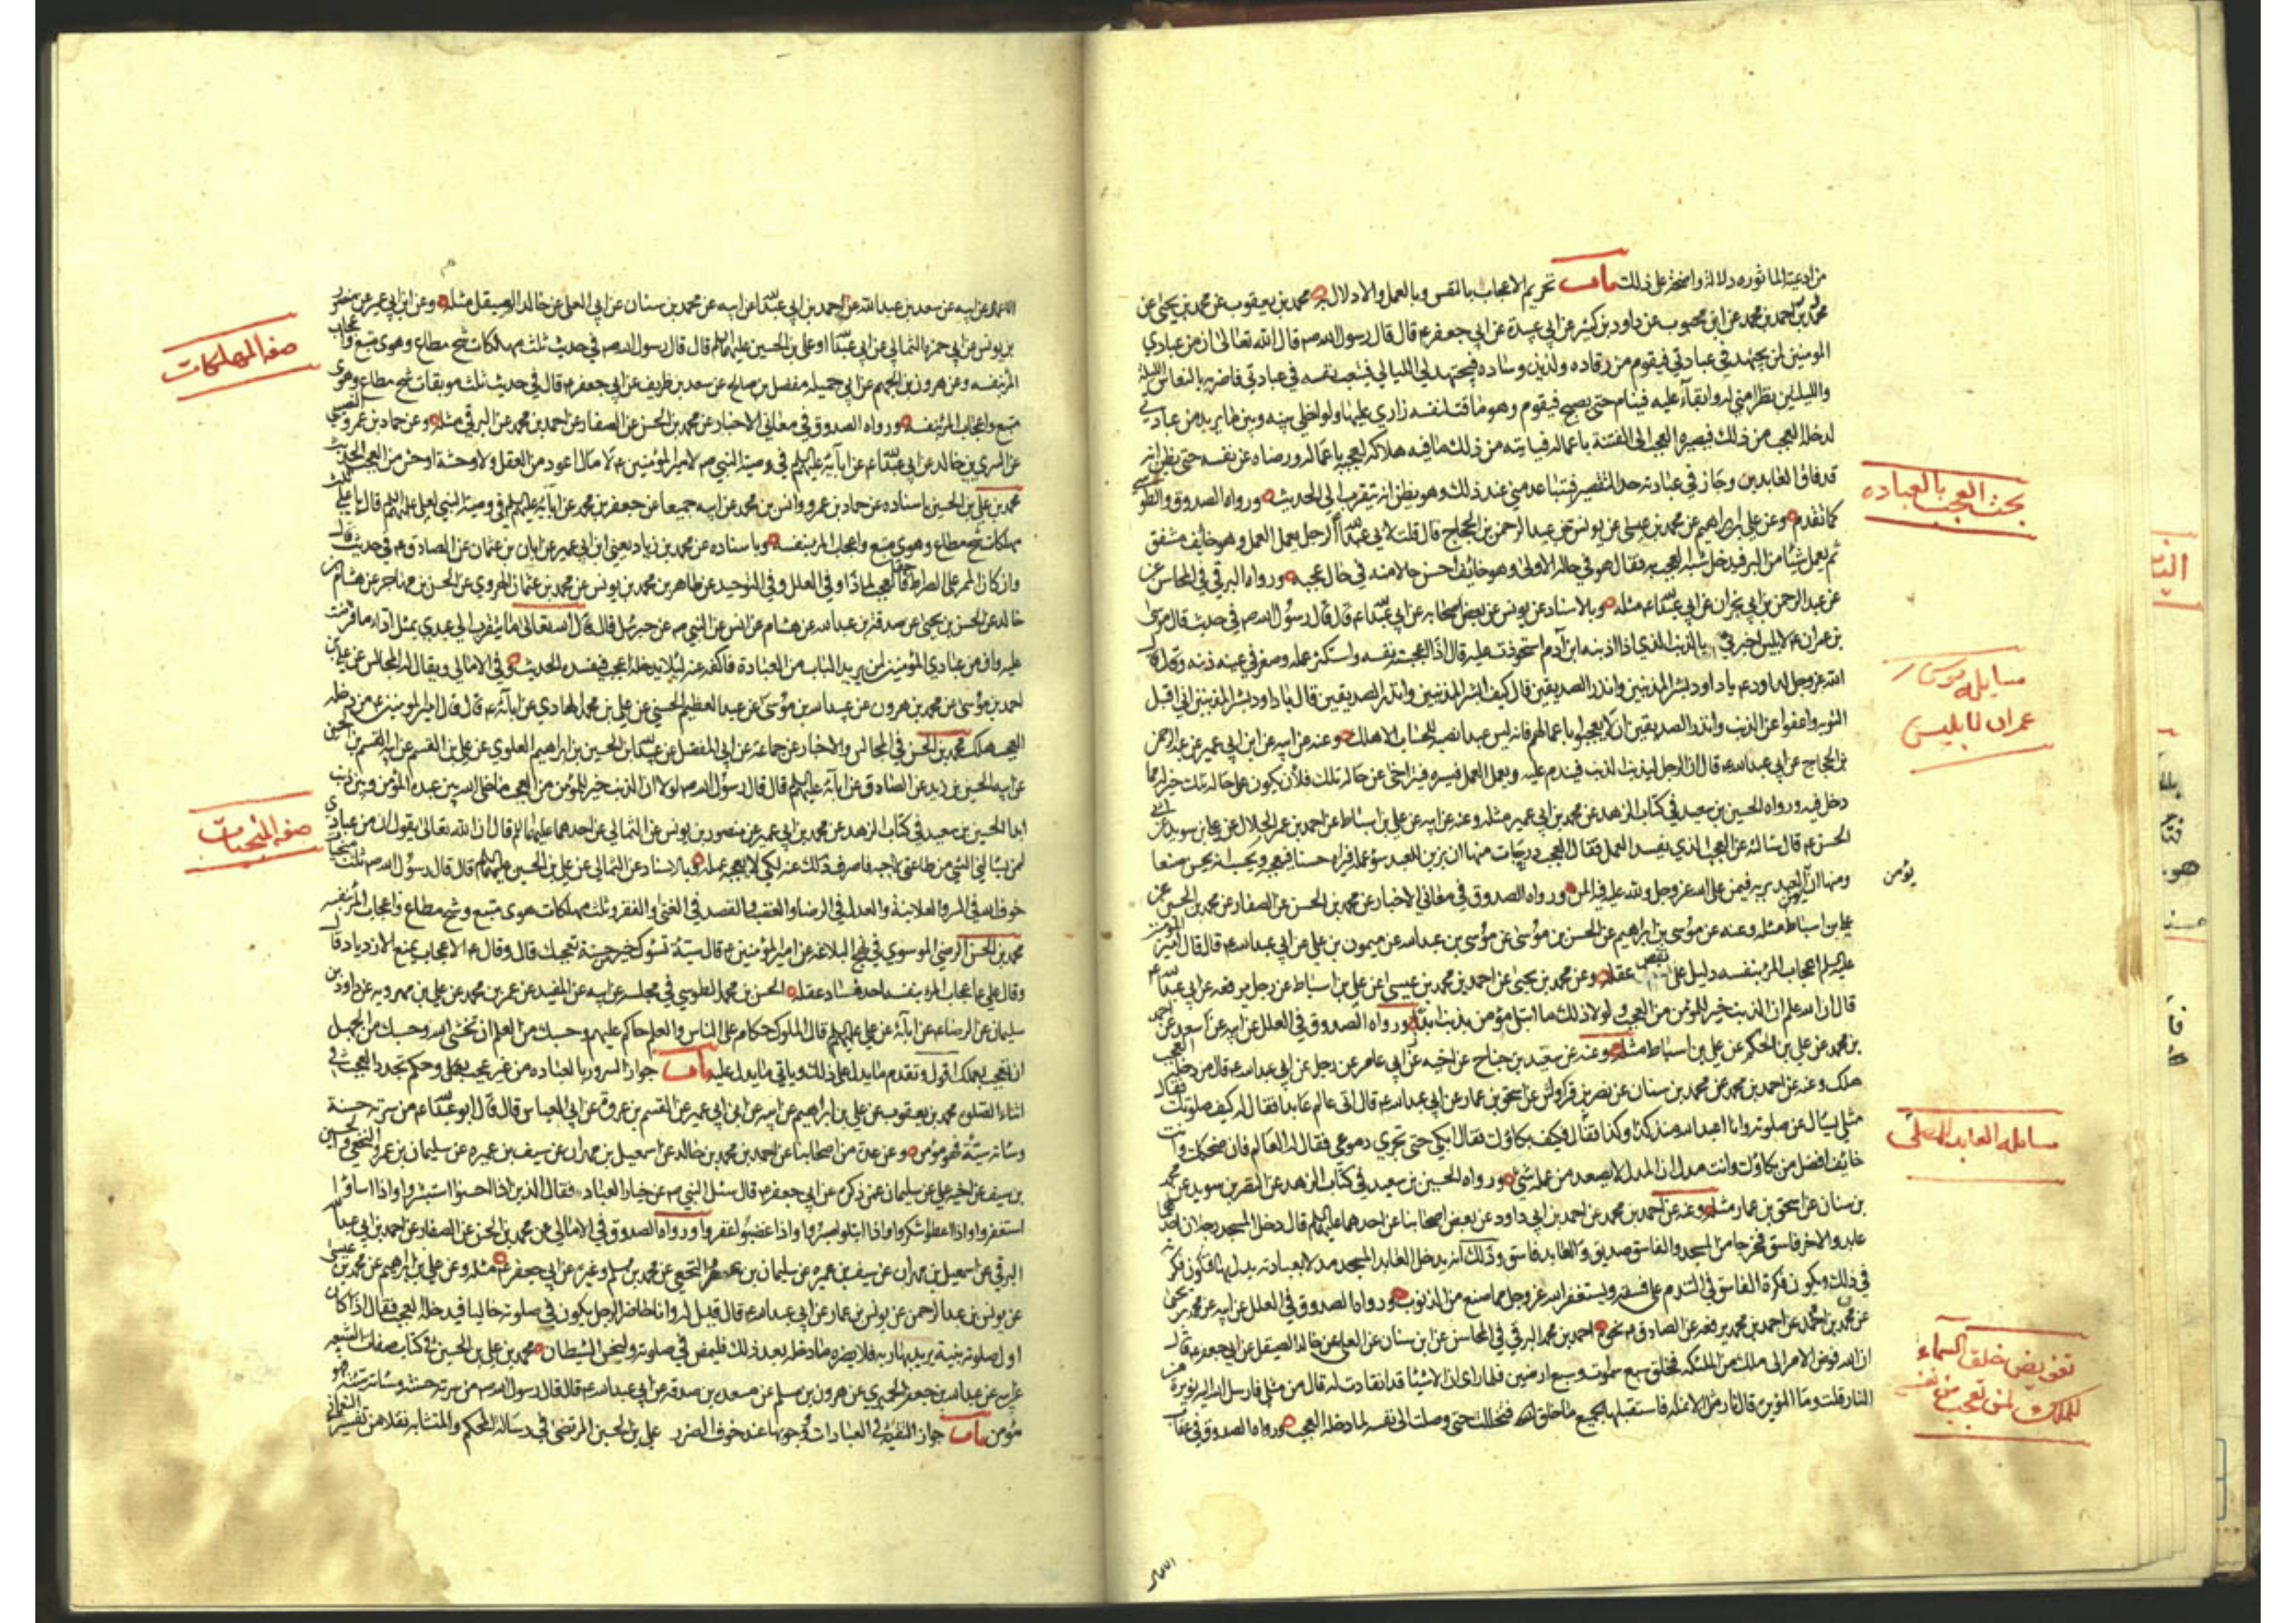 من ادعية الماثوره دلالة واضحة على ذلك باب تحريم الاعجاب بالنفس وبالعمل والادلال به محمد بن يعقوب عن محمد بن يحيى عن
محمد بن احمد بن محمد عن ابن محبوب عن داود بن كثير عن ابي عبيدة عن ابي جعفر ع قال قال رسول الله ص قال الله تعالى ان من عبادي
المومنين لمن يجتهد في عبادتي فيقوم من رقاده ولذيذ وساده فيجتهد لي الليالي فيتعب نفسه في عبادتي فاضربه بالنعاس الليلة
والليلتين نظرا مني له وابقاء عليه فينام حتى يصبح فيقوم وهو ماقت لنفسه زاري عليها ولو اخلي بينه وبين ما يريد من عبادتي
لدخله العجب من ذلك فيصيره العجب الى الفتنة باعماله فياتيه من ذلك ما فيه هلاكه لعجبه باعماله ورضاه عن نفسه حتى يظن انه
قد فاق العابدين وجاز في عبادته حد التقصير فيتباعد مني عند ذلك وهو يظن انه يتقرب الي الحديث ورواه الصدوق والطوسي
كما تقدم وعن علي بن ابراهيم عن محمد بن عيسى عن يونس عن عبد الرحمن بن الحجاج قال قلت لابي عبد الله ع الرجل يعمل العمل وهو خايف مشفق
ثم يعمل شيئا من البر فيدخله شبه العجب به فقال هو في حاله الاولى وهو خائف احسن حالا منه في حال عجبه ورواه البرقي في المحاسن عن
عن عبد الرحمن بن ابي نجران عن ابي عبد الله ع مثله وبالاسناد عن يونس عن بعض اصحابه عن ابي عبد الله ع قال قال رسول الله ص في حديث قال موسى
بن عمران ع لابليس اخبرني بالذنب الذي اذا اذنبه ابن آدم استحوذت عليه قال اذا اعجبته نفسه واستكثر عمله وصغر في عينه ذنبه وقال قال
الله عز وجل لداود ع يا داود بشر المذنبين وانذر الصديقين قال كيف ابشر المذنبين وانذر الصديقين قال يا داود بشر المذنبين اني اقبل
التوبه واعفو عن الذنب وانذر الصديقين ان لا يعجبوا باعمالهم فانه ليس عبد انصبه للحساب الا هلك وعنه عن ابيه عن ابن ابي عمير عن عبد الرحمن
بن الحجاج عن ابي عبد الله ع قال ان الرجل ليذنب الذنب فيندم عليه ويعمل العمل فيسره فيتراخى عن حاله تلك فلأن يكون على حاله تلك خير له مما
دخل فيه ورواه الحسين بن سعيد في كتاب الزهد عن محمد بن ابي عمير مثله وعنه عن ابيه عن علي بن اسباط عن احمد بن عمر الحلال عن علي بن سويد عن ابي
الحسن ع قال سالته عن العجب الذي يفسد العمل فقال العجب درجات منها ان يزين للعبد سوء عمله فيراه حسنا فيعجبه ويحسب انه يحسن صنعا
ومنها ان يؤمن العبد بربه فيمن على الله عز وجل ولله عليه فيه المن ورواه الصدوق في معاني الاخبار عن محمد بن الحسن عن الصفار عن محمد بن الحسين عن
علي بن اسباط مثله وعنه عن موسى بن ابراهيم عن الحسن بن موسى عن موسى بن عبد الله عن ميمون بن علي عن ابي عبد الله ع قال قال امير المومنين
عليه السلم اعجاب المرء بنفسه دليل على نقص عقله وعن محمد بن يحيى عن احمد بن محمد بن عيسى عن علي بن اسباط عن رجل يرفعه عن ابي عبد الله ع
قال ان الله علم ان الذنب خير للمؤمن من العجب ولولا ذلك ما ابتلي مؤمن بذنب ابدا ورواه الصدوق في العلل عن ابيه عن سعد عن احمد
بن محمد عن علي بن الحكم عن علي بن اسباط مثله وعنه عن سعيد بن جناح عن اخيه عن ابي عامر عن رجل عن ابي عبد الله ع قال من دخله العجب
هلك وعنه عن احمد بن محمد عن محمد بن سنان عن نضر بن قرواش عن اسحق بن عمار عن ابي عبد الله ع قال اتى عالم عابدا فقال له كيف صلوتك فقال
مثلي يسال عن صلوته وانا اعبد الله منذ كذا وكذا فقال فكيف بكاؤك فقال ابكي حتى تجري دموعي فقال له العالم فان ضحكك وانت
خائف افضل من بكاؤك وانت مدل ان المدل لا يصعد من عمله شيئ ورواه الحسين بن سعيد في كتاب الزهد عن النضر بن سويد عن محمد
بن سنان عن اسحق بن عمار مثله وعنه عن احمد بن محمد عن احمد بن ابي داود عن بعض اصحابنا عن احدهما عليهما السلم قال دخل المسجد رجلان احدهما
عابد والاخر فاسق فخرجا من المسجد والفاسق صديق والعابد فاسق وذلك انه يدخل العابد المسجد مدلا بعبادته يدل بها فتكون فكرته
في ذلك ويكون فكرة الفاسق في التندم على فسقه ويستغفر الله عز وجل مما صنع من الذنوب ورواه الصدوق في العلل عن ابيه عن محمد بن يحيى
عن محمد بن احمد عن احمد بن محمد يرفعه عن الصادق ع نحوه احمد بن محمد البرقي في المحاسن عن ابن سنان عن العلا عن خالد الصيقل عن ابي جعفر ع قال
ان الله فوض الامر الى ملك من الملئكه فخلق سبع سموات وسبع ارضين فلما راى ان الاشيئا قد انقادت له قال من مثلي فارسل الله اليه نويرة من
النار قلت وما النويره قال نار مثل الانمله فاستقبلها بجميع ما خلق فتخللت حتى وصلت الى نفسه لما دخله العجب ورواه الصدوق في عقاب
بحث العجب بالعباده
مسايله موسى بن
عمران لابليس
يؤمن
مسايله العابد المصلي
تفويض خلق السماء
للملك لمن تعجب من نفسه
الاعمال
الاعمال عن ابيه عن سعد بن عبد الله عن احمد بن ابي عبد الله عن ابيه عن محمد بن سنان عن ابي العلا عن خالد الصيقل مثله وعن ابن ابي عمير عن منصور
بن يونس عن ابي حمزه الثمالي عن ابي عبد الله او علي بن الحسين عليهما السلم قال قال رسول الله ص في حديث ثلث مهلكات شح مطاع وهوى متبع واعجاب
المرء بنفسه وعن هرون بن الجهم عن ابي جميله مفضل بن صالح عن سعد بن طريف عن ابي جعفر ع قال في حديث ثلث موبقات شح مطاع وهوى
متبع واعجاب المرء بنفسه ورواه الصدوق في معاني الاخبار عن محمد بن الحسن عن الصفار عن احمد بن محمد عن البرقي مثله وعن حماد بن عمرو النصيبي
عن السري بن خالد عن ابي عبد الله ع عن آبائه عليهم السلم في وصية النبي ص لامير المؤمنين ع لا مال اعود من العقل ولا وحشة اوحش من العجب الحديث
محمد بن علي بن الحسين باسناده عن حماد بن عمرو وانس بن محمد عن ابيه جميعا عن جعفر بن محمد عن آبائه عليهم السلم في وصية النبي لعلي عليهما السلم قال يا علي ثلث
مهلكات شح مطاع وهوى متبع واعجاب المرء بنفسه وباسناده عن محمد بن زياد يعني ابن ابي عمير عن ابان بن عثمان عن الصادق ع في حديث قال
وان كان الممر على الصراط حقا فالعجب لماذا وفي العلل وفي التوحيد عن طاهر بن محمد بن يونس عن محمد بن عثمان الهروي عن الحسن بن مهاجر عن هشام بن
خالد عن الحسن بن يحيى عن صدقة بن عبد الله عن هشام عن انس عن النبي ص عن جبرئيل قال قال الله تعالى ما يتقرب الي عبدي بمثل اداء ما افترضت
عليه وان من عبادي المؤمنين لمن يريد الباب من العبادة فاكفه عنه لئلا يدخله العجب فيفسده الحديث وفي الامالي ويقال له المجالس عن علي بن
احمد بن موسى عن محمد بن هرون عن عبيد الله بن موسى عن عبد العظيم الحسني عن علي بن محمد الهادي عن آبائه ع قال قال امير المومنين ع من دخله
العجب هلك محمد بن الحسن في المجالس والاخبار عن جماعة عن ابي المفضل عن عبيد الله بن الحسين بن ابراهيم العلوي عن علي بن القسم عن ابيه القسم بن الحسين
عن ابيه الحسين بن زيد عن الصادق عن آبائه عليهم السلم قال قال رسول الله ص لولا ان الذنب خير للمؤمن من العجب ما خلى الله بين عبده المؤمن وبين ذنب
ابدا الحسين بن سعيد في كتاب الزهد عن محمد بن ابي عمير عن منصور بن يونس عن الثمالي عن احدهما عليهما السلم قال ان الله تعالى يقول ان من عبادي
لمن يسالني الشئ من طاعتي لاحبه فاصرف ذلك عنه لكي لا يعجبه عمله وبالاسناد عن الثمالي عن علي بن الحسين عليهما السلم قال قال رسول الله ص ثلث منجيات
خوف الله في السر والعلانية والعدل في الرضا والغضب والقصد في الغنى والفقر وثلث مهلكات هوى متبع وشح مطاع واعجاب المرء بنفسه
محمد بن الحسن الرضي الموسوي في نهج البلاغه عن امير المؤمنين ع قال سيئة تسوئك خير من حسنة تعجبك قال وقال ع الاعجاب يمنع الازدياد قال
وقال علي ع اعجاب المرء بنفسه احد فساد عقله الحسن بن محمد الطوسي في مجلسه عن ابيه عن المفيد عن عمر بن محمد عن علي بن مهرويه عن داود بن
سليمان عن الرضا ع عن آبائه عن علي عليهم السلم قال الملوك حكام على الناس والعلم حاكم عليهم وحسبك من العلم ان تخشى الله وحسبك من الجهل
ان تعجب بعملك اقول وتقدم ما يدل على ذلك وياتي ما يدل عليه باب جواز السرور بالعباده من غير عجب وحكم تجدد العجب في
اثناء الصلوة محمد بن يعقوب عن علي بن ابراهيم عن ابيه عن ابن ابي عمير عن القسم بن عروة عن ابي العباس قال قال ابو عبد الله ع من سرته حسنة
وسائته سيئة فهو مؤمن وعن عدة من اصحابنا عن احمد بن محمد بن خالد عن اسمعيل بن مهران عن سيف بن عميره عن سليمان بن عمرو النخعي وعن الحسين
بن سيف عن اخيه علي عن سليمان عمن ذكره عن ابي جعفر ع قال سئل النبي ص عن خيار العباد فقال الذين اذا احسنوا استبشروا واذا اساؤا
استغفروا واذا اعطوا شكروا واذا ابتلوا صبروا واذا غضبوا غفروا ورواه الصدوق في الامالي عن محمد بن الحسن عن الصفار عن احمد بن ابي عبد الله
البرقي عن اسمعيل بن مهران عن سيف بن عميره عن سليمان بن عمر النخعي عن محمد بن مسلم وغيره عن ابي جعفر ع مثله وعن علي بن ابراهيم عن محمد بن عيسى
عن يونس بن عبد الرحمن عن يونس بن عمار عن ابي عبد الله ع قال قيل له وانا حاضر الرجل يكون في صلوته خاليا فيدخله العجب فقال اذا كان
اول صلوته بنية يريد بها ربه فلا يضره ما دخله بعد ذلك فليمض في صلوته وليخس الشيطان محمد بن علي بن الحسين في كتاب صفات الشيعه
عن ابيه عن عبد الله بن جعفر الحميري عن هرون بن مسلم عن مسعدة بن صدقه عن ابي عبد الله ع قال قال رسول الله ص من سرته حسنته وسائته سيئته فهو
مؤمن باب جواز التقية في العبادات ووجوبها عند خوف الضرر علي بن الحسين المرتضى في رسالة المحكم والمتشابه نقلا من تفسير النعماني
صفه المهلكات
صفه المنجيات